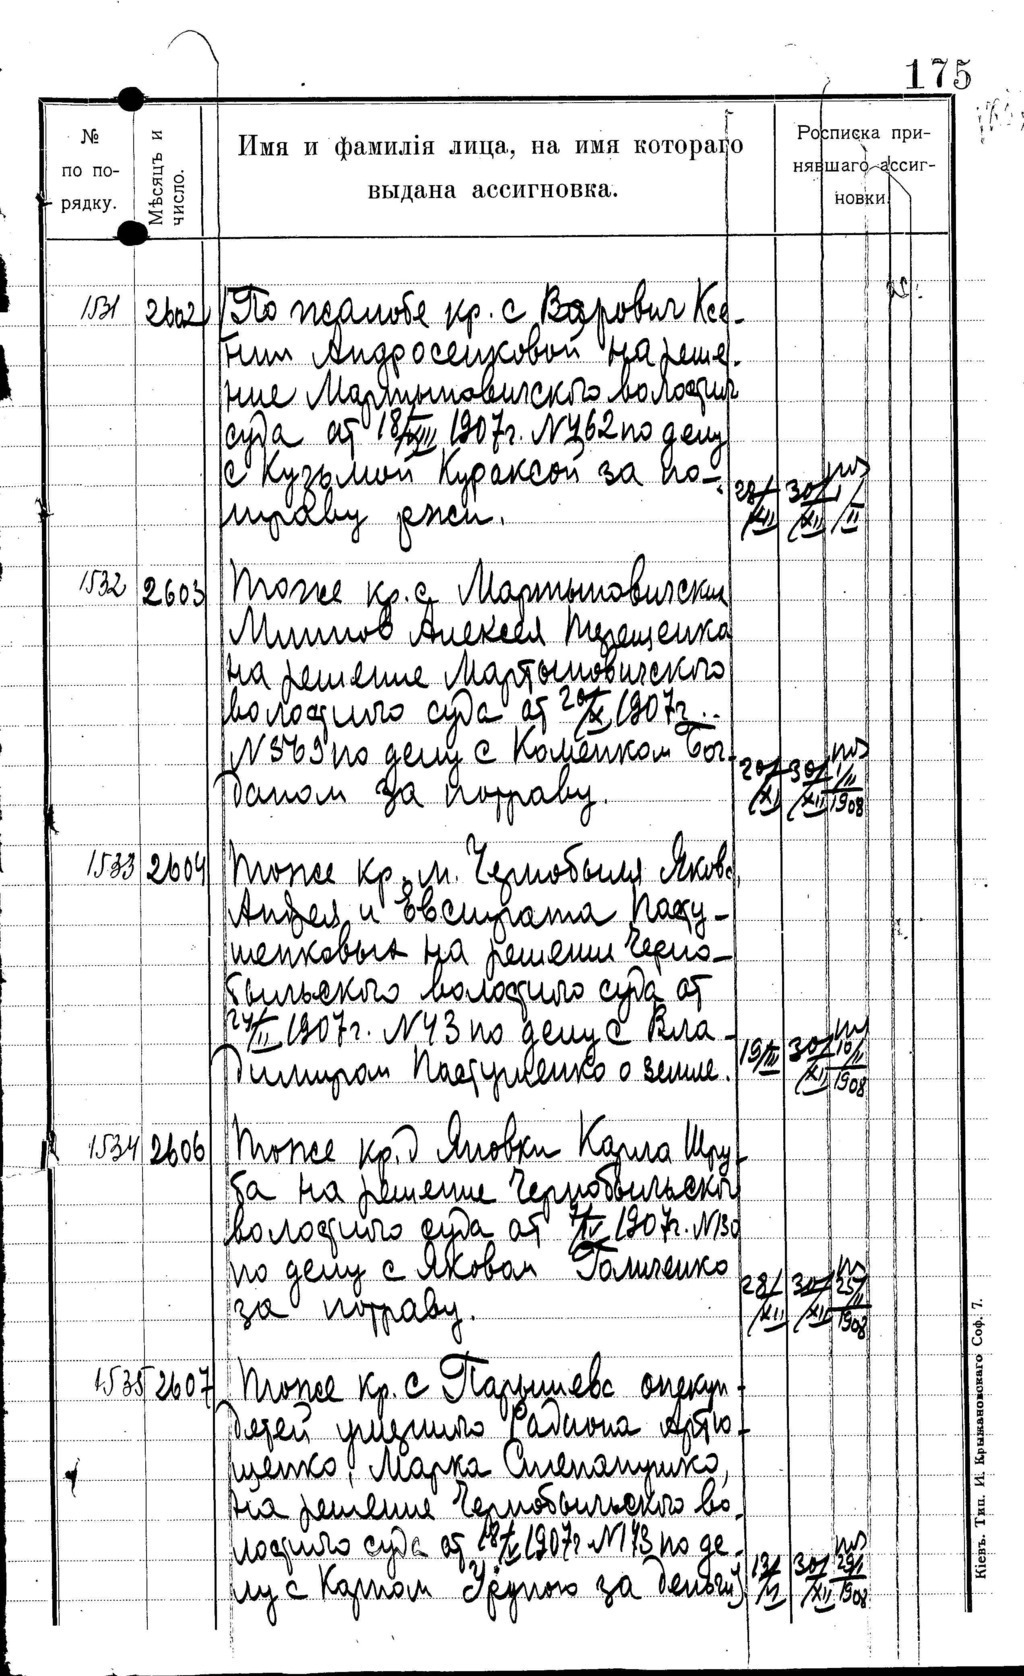 175
№ по по-рядку.
Мѣсяцъ и число.
Имя и фамилія лица, на имя котораго
выдана ассигновка.
Росписка при-
нявшаго ассиг-
новки
1531 2602 По жалобе кр. с Варович Ксе-
нии Андросенковой на реше-
ние Мартыновичского волостн
суда от 18/XII 1907 г. N 762 по делу
с Кузьмой Кураксой за по-
траву ржи. 28/XII 30/XII 1/II
1532 2603 Тоже кр. с Мартыновичских
Алексея Терещенка
на решение Мартыновичского
волостного суда от 20/X 1907 г.
N 569 по делу с Коменком Бог-
даном за потраву. 20/XI 30/XII 1/II 1908
1533 2604 Тоже кр. м. Чернобыля Якова,
Андрея и Евстрата Пасту-
шенковых на решении Черно-
быльского волостного суда от
27/II 1907 г. N 43 по делу с Вла-
димиром Пастушенко о земле. 19/III 30/XII 10/II 1908
1534 2606 Тоже кр. д Яновки Карла Шру-
ба на решение Чернобыльског
волостного суда от 7/IV 1907 г. N 130
по делу с Яковом Галиченко
за потраву. 28/XII 30/XII 25/II 1908
1535 2607 Тоже кр. с Парышевс опекун
детей умершего Радиона Артю-
щенко, Марка Степанушко,
на решение Чернобыльского во-
лостного суда от 18/X 1907 г N 173 по де-
лу с Карпом за деньги 30/XII 29/I 1908
Кіевъ. Тип. И. Крыжановскаго Соф. 7.